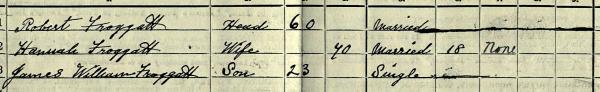 1 Robert Froggatt Head 60 Married
2 Hannah Froggatt Wife 40 Married 18 None
3 James William Froggatt Son 23 Single